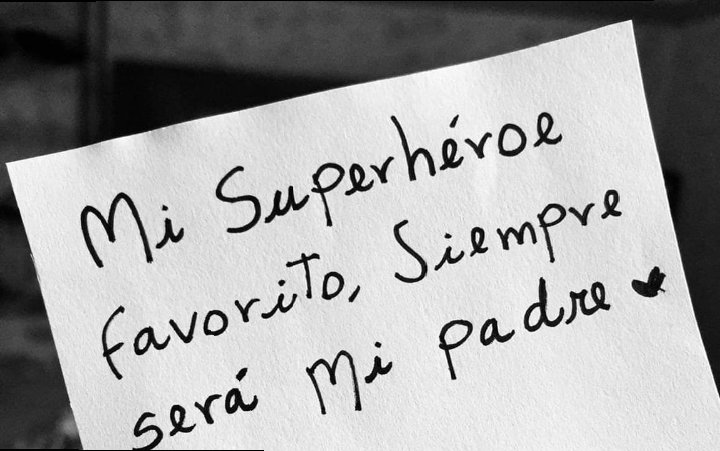 Mi Superhéroe
favorito, Siempre
será Mi padre